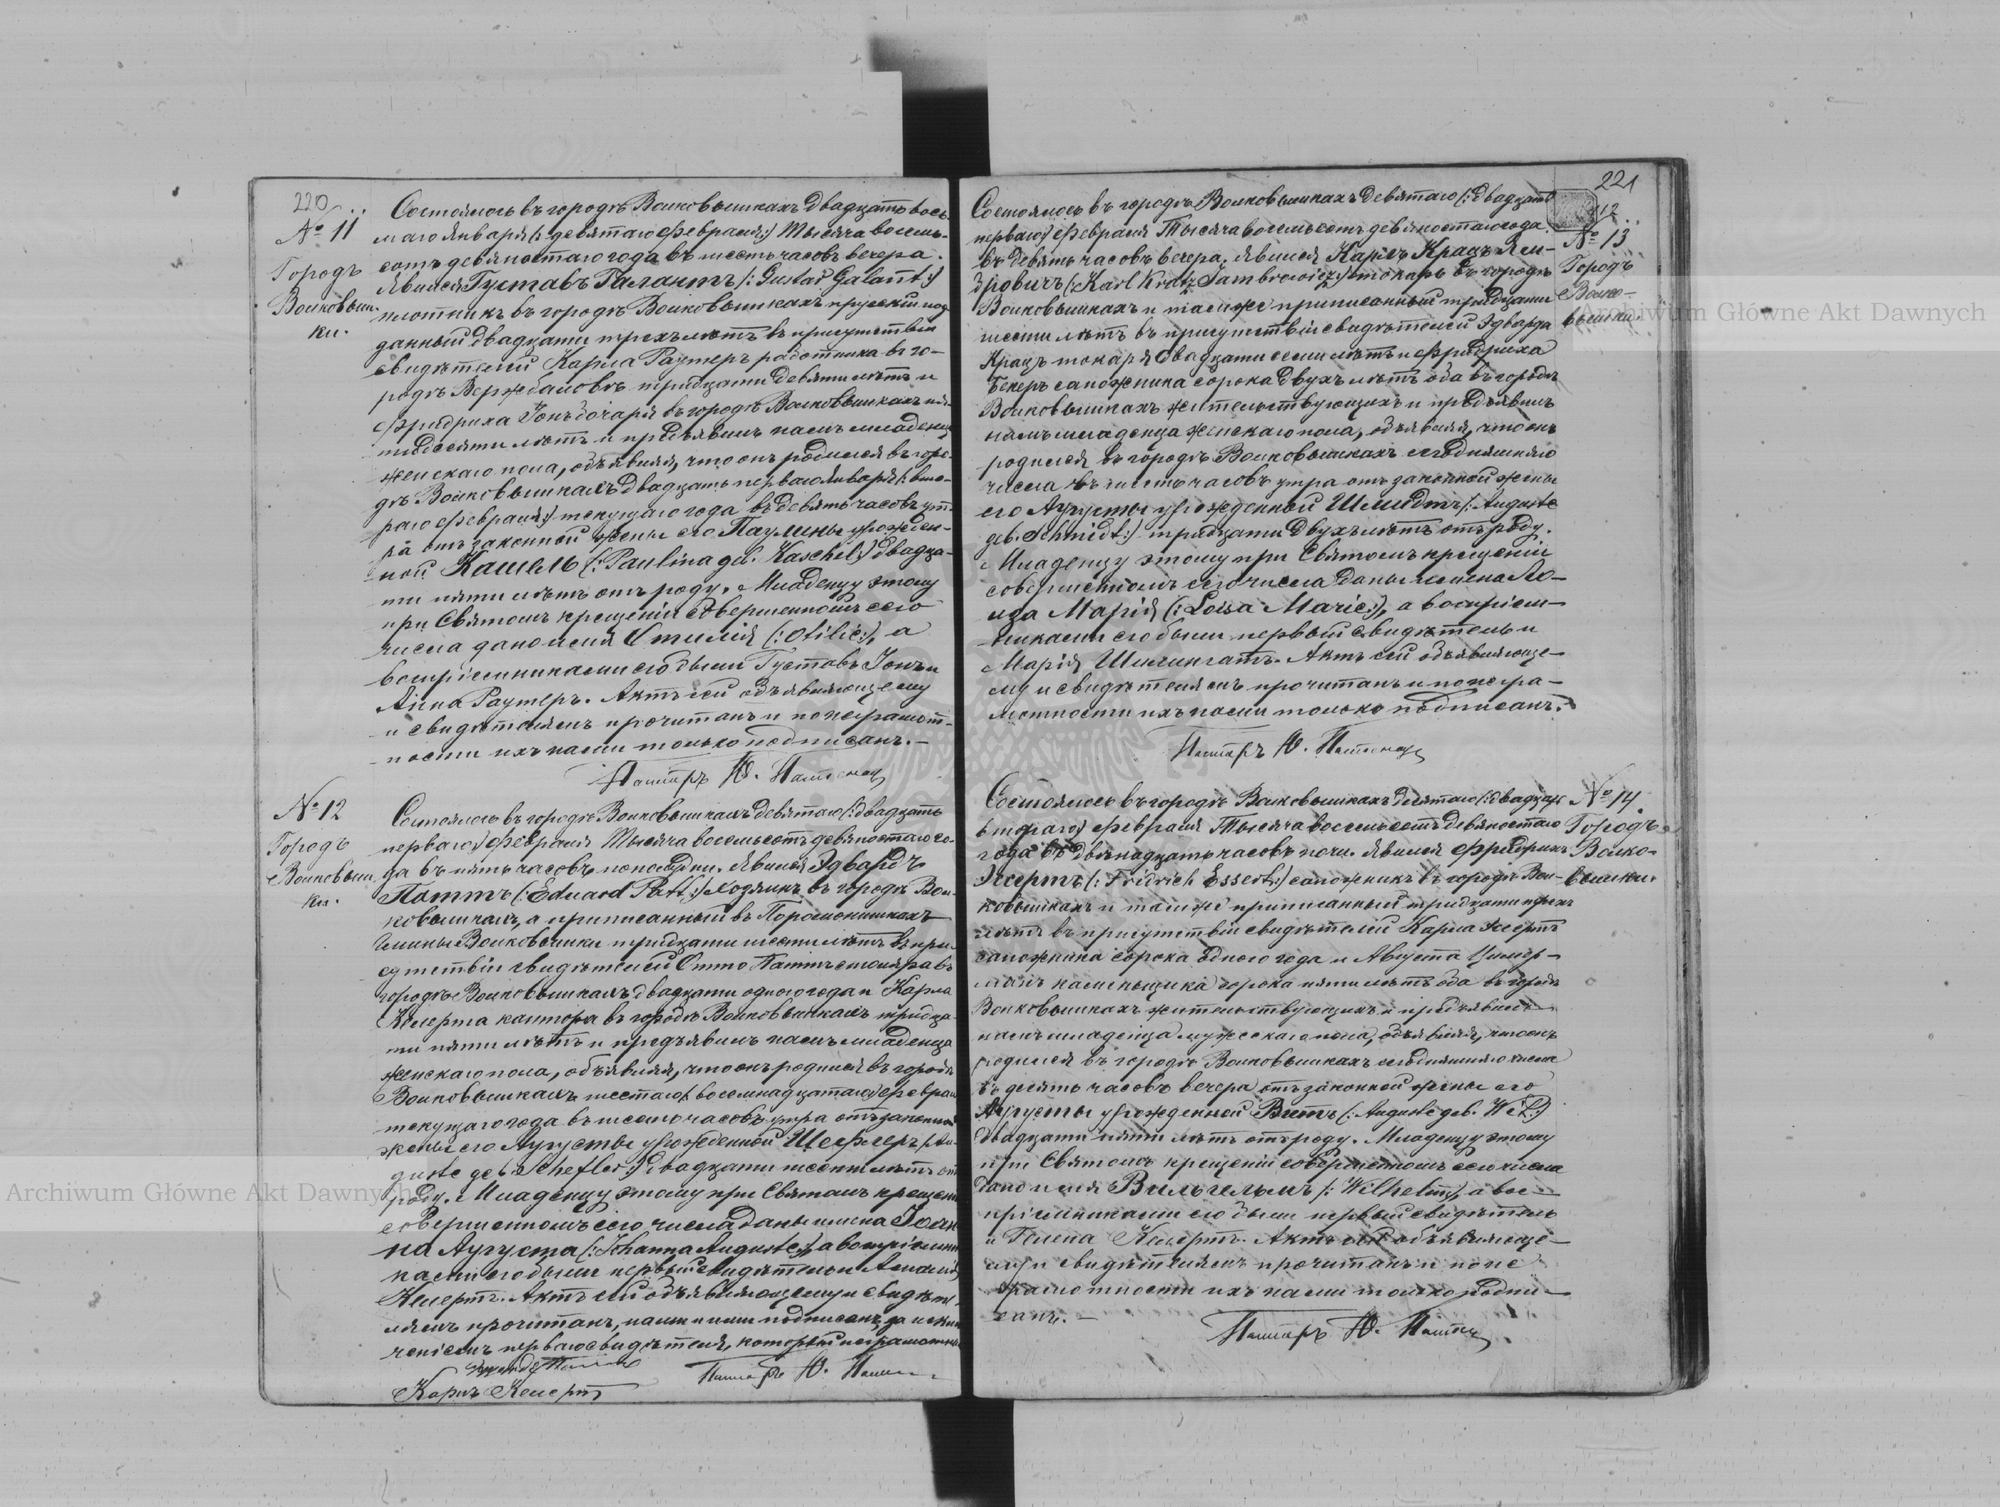 220
№ 11
Городъ
Волковыш-
ки.
Состоялось въ городѣ Волковышкахъ двадцать вось-
маго Января (: девятаго Февраля :) Тысяча восемь-
сотъ девяностаго года въ шесть часовъ вечера.
Явился Густавъ Галантъ (: Gustav Galant :)
плотникъ въ городѣ Волковышкахъ прусскій под-
данный двадцати трехъ лѣтъ въ присутствіи
свидѣтелей Карла Раутеръ работника въ го-
родѣ Вержболовѣ тридцати девяти лѣтъ и
Фридриха Іонъ бочаря въ городѣ Волковышкахъ пя-
тидесяти лѣтъ и предъявилъ намъ младенца
женскаго пола, объявляя, что онъ родился въ горо-
дѣ Волковышкахъ двадцать перваго Января (: вто-
раго Февраля :) текущаго года въ девять часовъ ут-
ра отъ законной жены его Паулины урожден-
ной Кашель (: Paulina geb. Kaschel :) двадца-
ти пяти лѣтъ отъ роду. Младенцу этому
при Святомъ крещеніи совершенномъ сего
числа дано имя Отилія (: Otilie :), а
воспріемниками его были Густавъ Іонъ и
Анна Раутеръ. Актъ сей объявляющему
и свидѣтелямъ прочитанъ и по неграмот-
ности ихъ нами только подписанъ. —
Пасторъ Ю.
№ 12
Городъ
Волковыш-
ки.
Состоялось въ городѣ Волковышкахъ девятаго (: двадцать
перваго :) Февраля Тысяча восемьсотъ девяностаго го-
да въ пять часовъ пополудни. Явился Эдвардъ
Паттъ (: Eduard Patt :) хозяинъ въ городѣ Вол-
ковышкахъ, а приписанный въ
Гмины Волковышки тридцати шести лѣтъ въ при-
сутствіи свидѣтелей Отто Паттъ столяра въ
городѣ Волковышкахъ двадцати одного года и Карла
Кешерта кантора въ городѣ Волковышкахъ тридца-
ти пяти лѣтъ и предъявилъ намъ младенца
женскаго пола, объявляя, что онъ родился въ городѣ
Волковышкахъ шестаго (: восемнадцатаго :) Февраля
текущаго года въ шесть часовъ утра отъ законной
жены его Аугусты урожденной Шефлеръ (: Au-
guste geb. Schefler :) двадцати шести лѣтъ отъ
роду. Младенцу этому при Святомъ крещеніи
совершенномъ сего числа даны имена Іоан-
на Аугуста (: Johanna Auguste :), а воспріемни-
ками его были первый свидѣтель и Амалія
Кешертъ. Актъ сей объявляющему и свидѣте-
лямъ прочитанъ, нами и ими подписанъ за исклю-
ченіемъ перваго свидѣтеля, который неграмотный.
Карлъ Кешертъ
Пасторъ Ю.
221
112
№ 13
Городъ
Волко-
вышки
Состоялось въ городѣ Волковышкахъ девятаго (: двадцать
перваго :) Февраля Тысяча восемьсотъ девяностаго года
въ девять часовъ вечера. Явился Карлъ Крацъ Ям-
дровичъ (: Karl Kratz :) токарь въ городѣ
Волковышкахъ и тамже приписанный тридцати
шести лѣтъ въ присутствіи свидѣтелей Эдварда
Крацъ токаря двадцати семи лѣтъ и Фридриха
Бекеръ сапожника сорока двухъ лѣтъ оба въ городѣ
Волковышкахъ жительствующихъ и предъявилъ
намъ младенца женскаго пола, объявляя, что онъ
родился въ городѣ Волковышкахъ сегодняшняго
числа въ шесть часовъ утра отъ законной жены
его Аугусты урожденной Шмидтъ (: Auguste
geb. Schmidt :) тридцати двухъ лѣтъ отъ роду.
Младенцу этому при Святомъ крещеніи
совершенномъ сего числа даны имена Ло-
иза Марія (: Loisa Marie :), а воспріем-
никами его были первый свидѣтель и
Марія Актъ сей объявляюще-
му и свидѣтелямъ прочитанъ и по негра-
мотности ихъ нами только подписанъ.
Пасторъ Ю.
№ 14.
Городъ
Волко-
вышки.
Состоялось въ городѣ Волковышкахъ десятаго (: двадцать
втораго :) Февраля Тысяча восемьсотъ девяностаго
года въ двѣнадцать часовъ ночи. Явился Фридрихъ
Эсертъ (: Fridrich Essert :) сапожникъ въ городѣ Вол-
ковышкахъ и тамже приписанный тридцати трехъ
лѣтъ въ присутствіи свидѣтелей Карла Эсертъ
сапожника сорока одного года и Августа Цимер-
манъ каменьщика сорока пяти лѣтъ оба въ городѣ
Волковышкахъ жительствующихъ и предъявилъ
намъ младенца мужескаго пола, объявляя, что онъ
родился въ городѣ Волковышкахъ сегодняшняго числа
въ десять часовъ вечера отъ законной жены его
Аугусты урожденной Витъ (: Auguste geb. Wit :)
двадцати пяти лѣтъ отъ роду. Младенцу этому
при Святомъ крещеніи совершенномъ сего числа
дано имя Вильгельмъ (: Wilhelm :), а вос-
пріемниками его были первый свидѣтель
и Галена Кешертъ. Актъ сей объявляюще-
му и свидѣтелямъ прочитанъ и по не-
грамотности ихъ нами только подпи-
санъ. —
Пасторъ Ю.
Archiwum Główne Akt Dawnych
Archiwum Główne Akt Dawnych